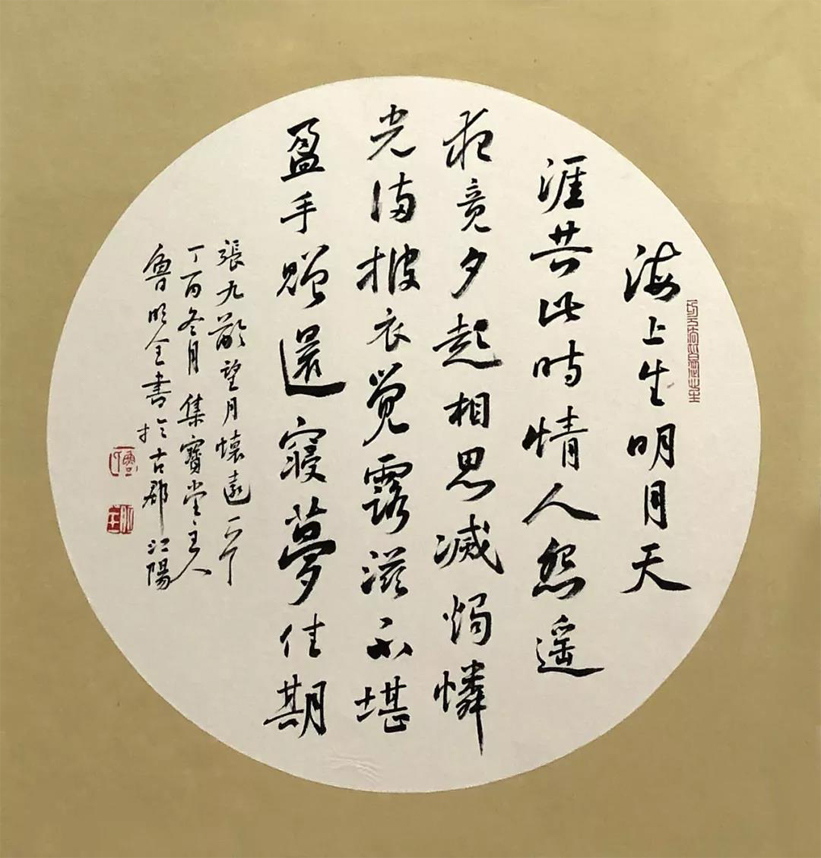 海上生明月天
涯共此時情人怨遥
夜竟夕起相思滅燭憐
光满披衣觉露滋不堪
盈手贈還寢夢佳期
張九齡望月懷遠一首
丁酉冬月集寶堂主人
魯明全書於古郡江陽